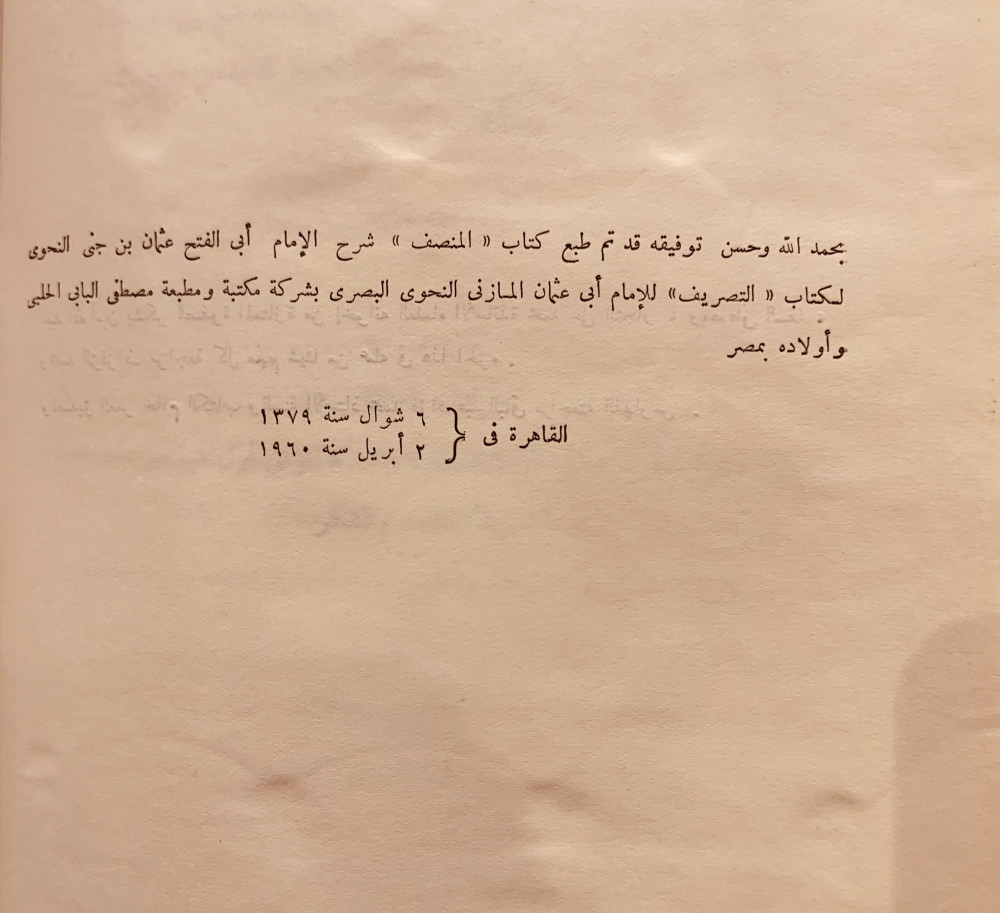 بحمد الله وحسن توفيقه قد تم طبع كتاب « المنصف » شرح الإمام أبى الفتح عثمان بن جنى النحوى
لكتاب « التصريف» للإمام أبى عثمان المازنى النحوى البصرى بشركة مكتبة ومطبعة مصطفى البابى الحلبى
وأولاده بمصر
القاهرة فى { ٦ شوال سنة ١٣٧٩
٢ أبريل سنة ١٩٦٠